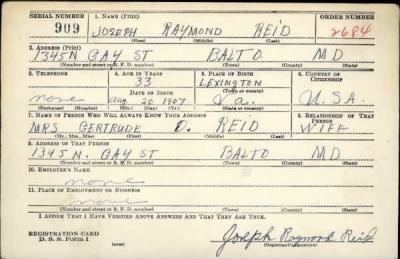 SERIAL NUMBER 1. NAME (Print) ORDER NUMBER
909 JOSEPH RAYMOND REID 2684
(First) (Middle) (Last)
2. ADDRESS (Print)
1345 N GAY ST BALTO MD
(Number and street or R. F. D. number) (Town) (County) (State)
3. TELEPHONE 4. AGE IN YEARS 5. PLACE OF BIRTH 6. COUNTRY OF CITIZENSHIP
33 LEXINGTON
none DATE OF BIRTH (Town or county) U.S.A.
Aug 20 1907 Va.
(Exchange) (Number) (Mo.) (Day) (Yr.) (State or country)
7. NAME OF PERSON WHO WILL ALWAYS KNOW YOUR ADDRESS 8. RELATIONSHIP OF THAT PERSON
MRS GERTRUDE D. REID WIFE
(Mr., Mrs., Miss) (First) (Middle) (Last)
9. ADDRESS OF THAT PERSON
1345 N. GAY ST BALTO MD
(Number and street or R. F. D. number) (Town) (County) (State)
10. EMPLOYER'S NAME
none
11. PLACE OF EMPLOYMENT OR BUSINESS
none
(Number and street or R. F. D. number) (Town) (County) (State)
I AFFIRM THAT I HAVE VERIFIED ABOVE ANSWERS AND THAT THEY ARE TRUE.
REGISTRATION CARD
D. S. S. Form 1 (over) Joseph Raymond Reid
(Registrant's signature)